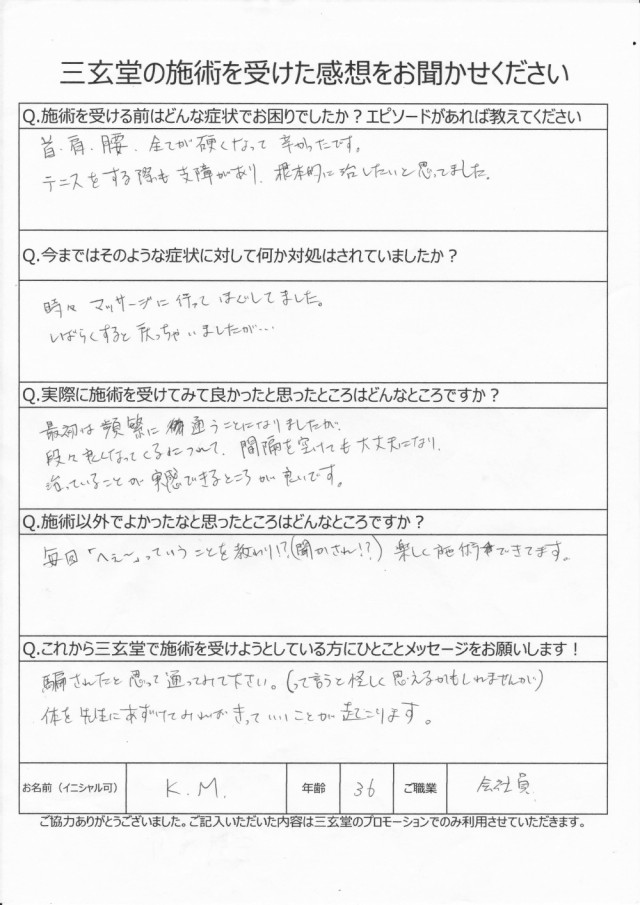 三玄堂の施術を受けた感想をお聞かせください
Q.施術を受ける前はどんな症状でお困りでしたか？エピソードがあれば教えてください
首、肩、腰、全てが硬くなって辛かったです。
テニスをする際も支障があり、根本的に治したいと思ってました。
Q.今まではそのような症状に対して何か対処はされていましたか？
時々マッサージに行ってほぐしてました。
しばらくすると戻っちゃいましたが…
Q.実際に施術を受けてみて良かったと思ったところはどんなところですか？
最初は頻繁に通うことになりましたが、
段々良くなってくるにつれて、間隔を空けても大丈夫になり、
治っていることが実感できるところが良いです。
Q.施術以外でよかったなと思ったところはどんなところですか？
毎回「へぇ〜」っていうことを教わり!?(聞かされ!?)楽しく施術できてます。
Q.これから三玄堂で施術を受けようとしている方にひとことメッセージをお願いします！
騙されたと思って通ってみて下さい。(って言うと怪しく思えるかもしれませんが)
体を先生にあずけてみればきっといいことが起こります。
お名前（イニシャル可） K.M. 年齢 36 ご職業 会社員
ご協力ありがとうございました。ご記入いただいた内容は三玄堂のプロモーションでのみ利用させていただきます。